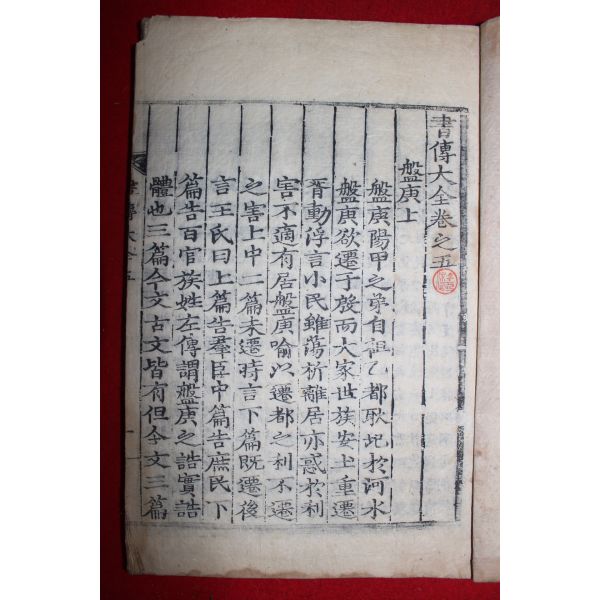 書傳大全卷之五
盤庚上
盤庚陽甲之弟自祖乙都耿圮於河水
盤庚欲遷于殷而大家世族安土重遷
胥動浮言小民雖蕩析離居亦惑於利
害不適有居盤庚喻以遷都之利不遷
之害上中二篇未遷時言下篇既遷後
言王氏曰上篇告羣臣中篇告庶民下
篇告百官族姓左傳謂盤庚之誥實誥
體也三篇今文古文皆有但今文三篇
書傳大全五